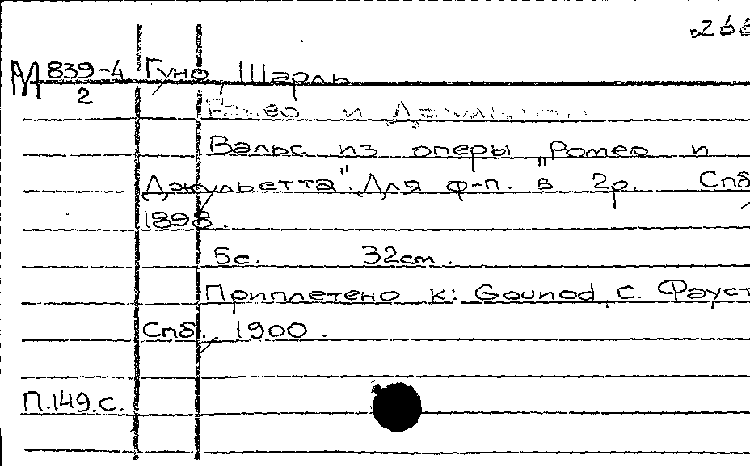 268
М 839-4 Гуно, Шарль
2
Ромео и Джульетта
Вальс из оперы "Ромео и
Джульетта". Для ф-п. в 2р. Спб
1898.
5с. 32cm.
Приплетено к: Gounod, C. Фауст
Спб., 1900.
П.149.с.